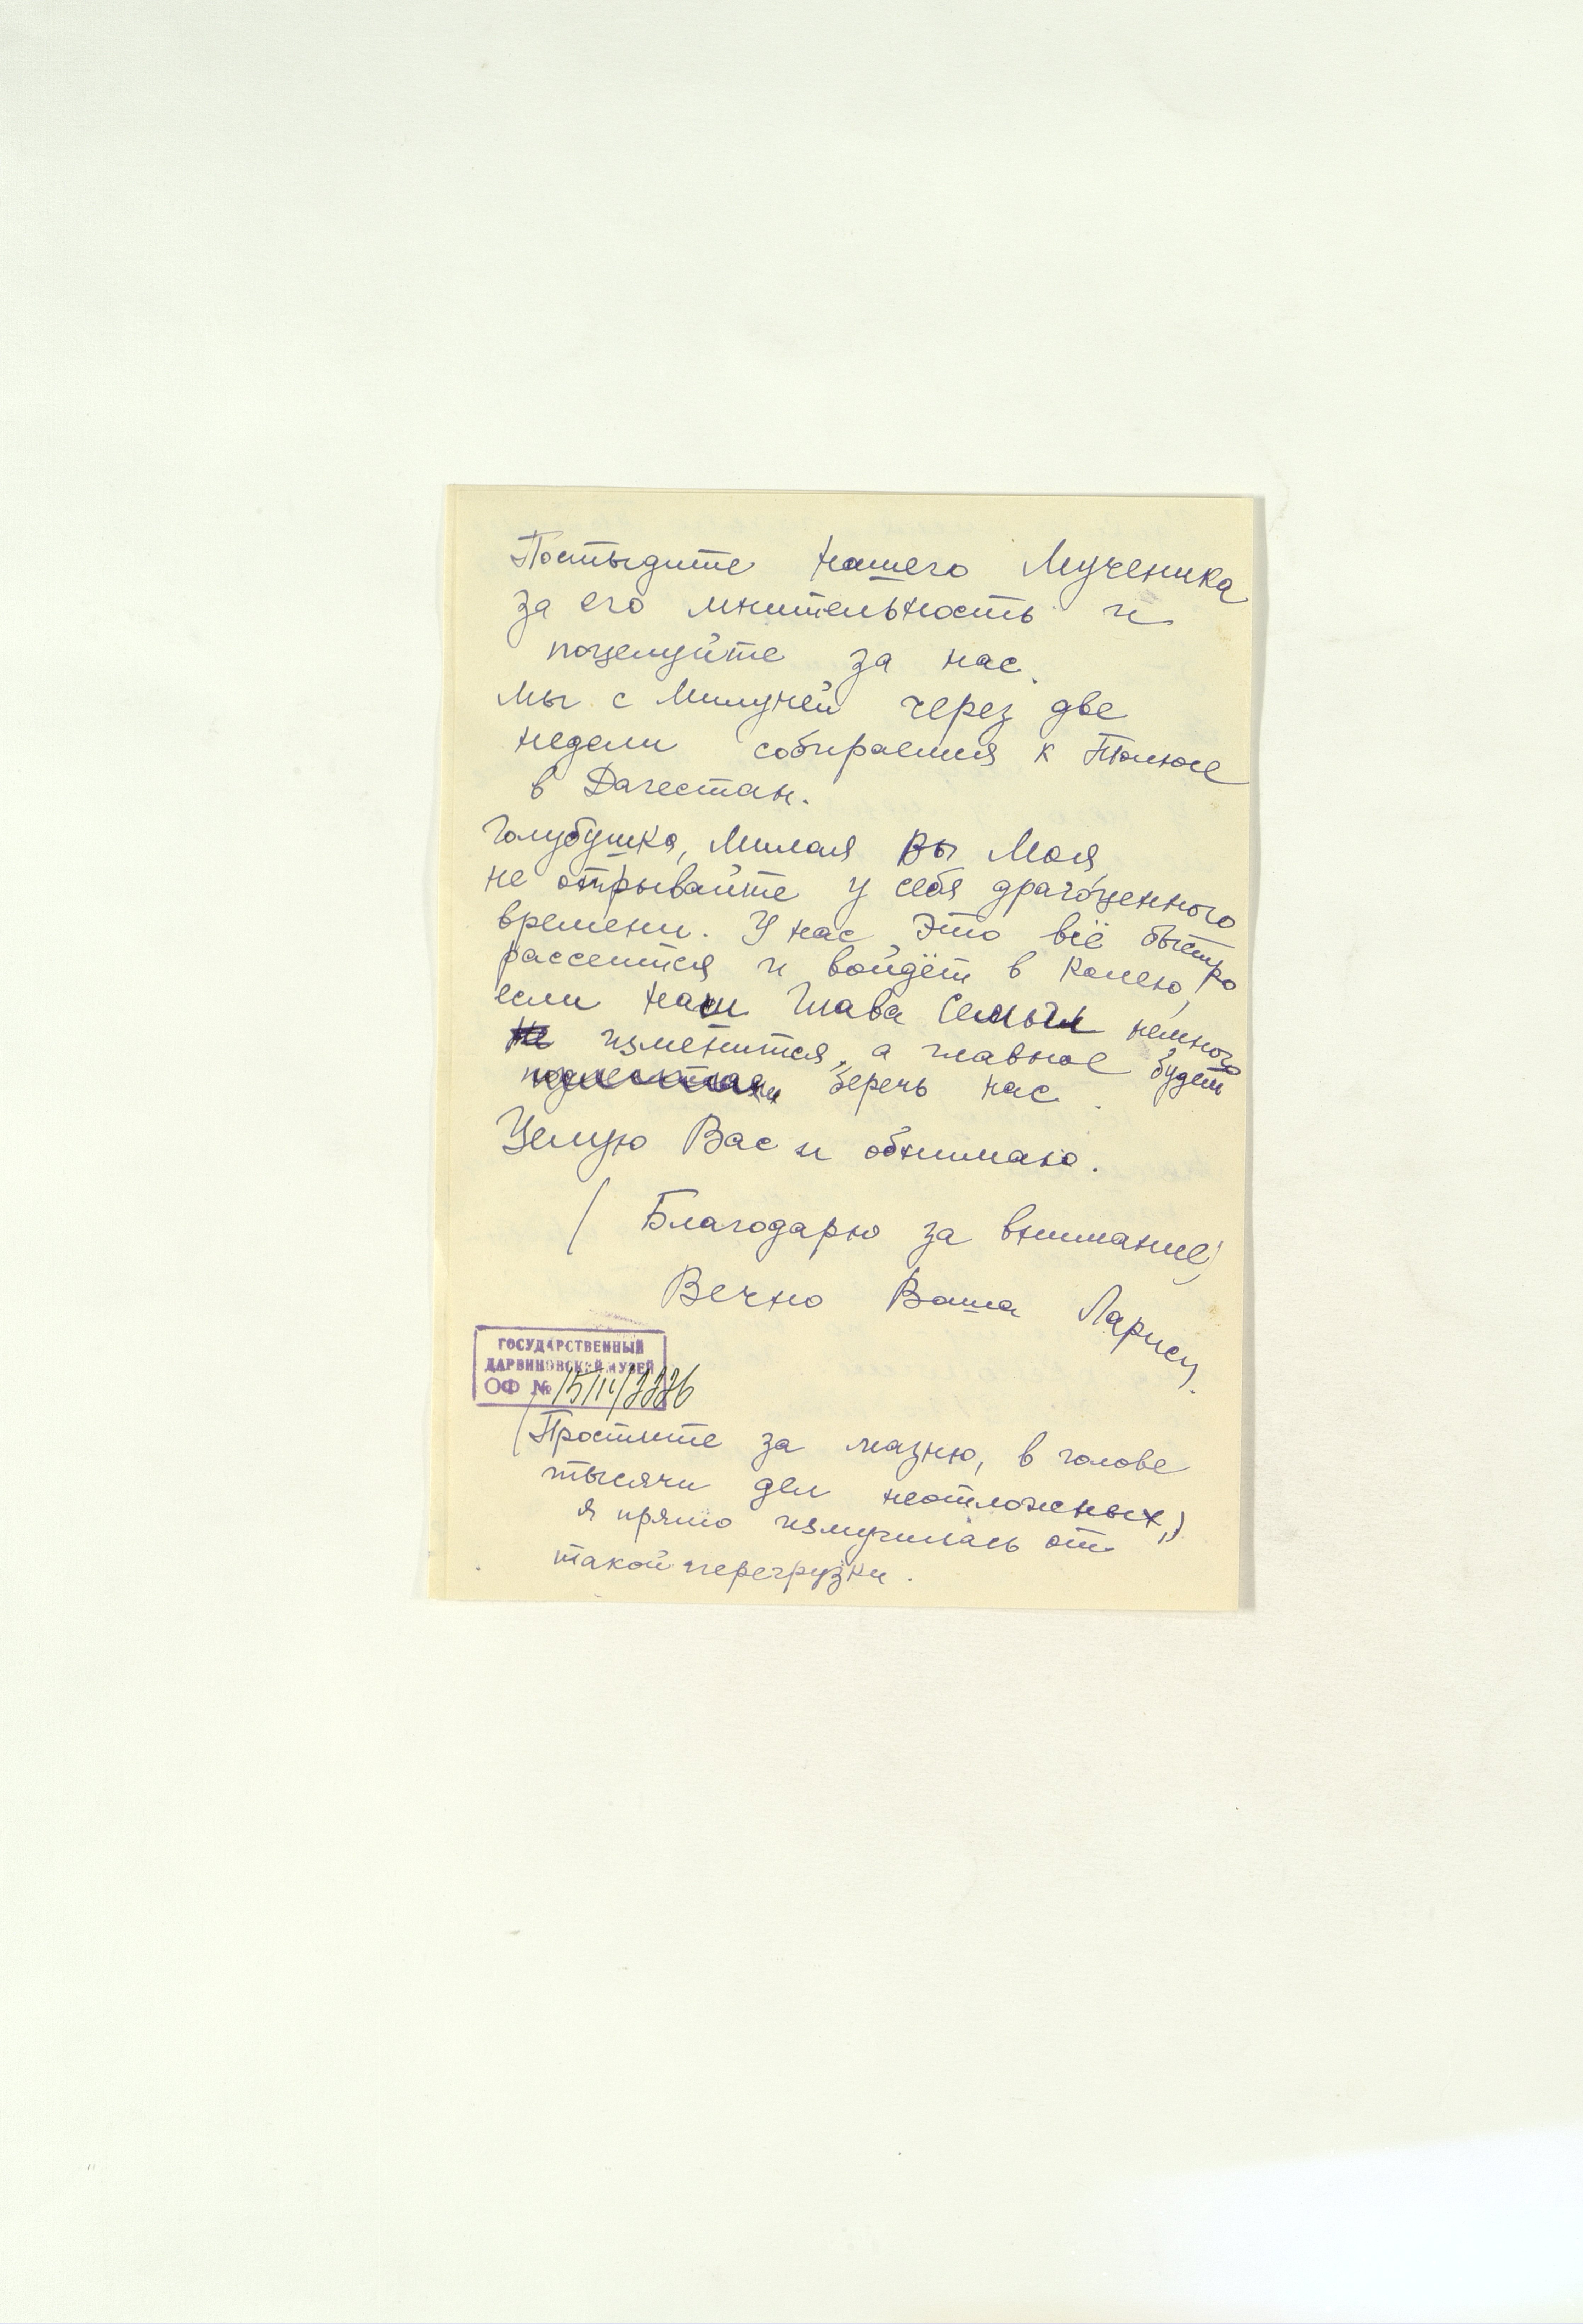 Постыдите нашего Мученика
за его мнительность и
поцелуйте за нас.
Мы с Милуней через две
недели собираемся к Толюсе
в Дагестан.
Голубушка, Милая Вы Моя,
не отрывайте у себя драгоценного
времени. У нас это всё быстро
рассеится и войдёт в колею,
если наш Глава Семьи немного
изменится, а главное будет
беречь нас.
Целую Вас и обнимаю.
(Благодарю за внимание)
Вечно Ваша Лариса.
ГОСУДАРСТВЕННЫЙ
ДАРВИНОВСКИЙ МУЗЕЙ
ОФ №
(Простите за мазню, в голове
тысячи дел неотложных,)
я прямо измучилась от
такой перегрузки.